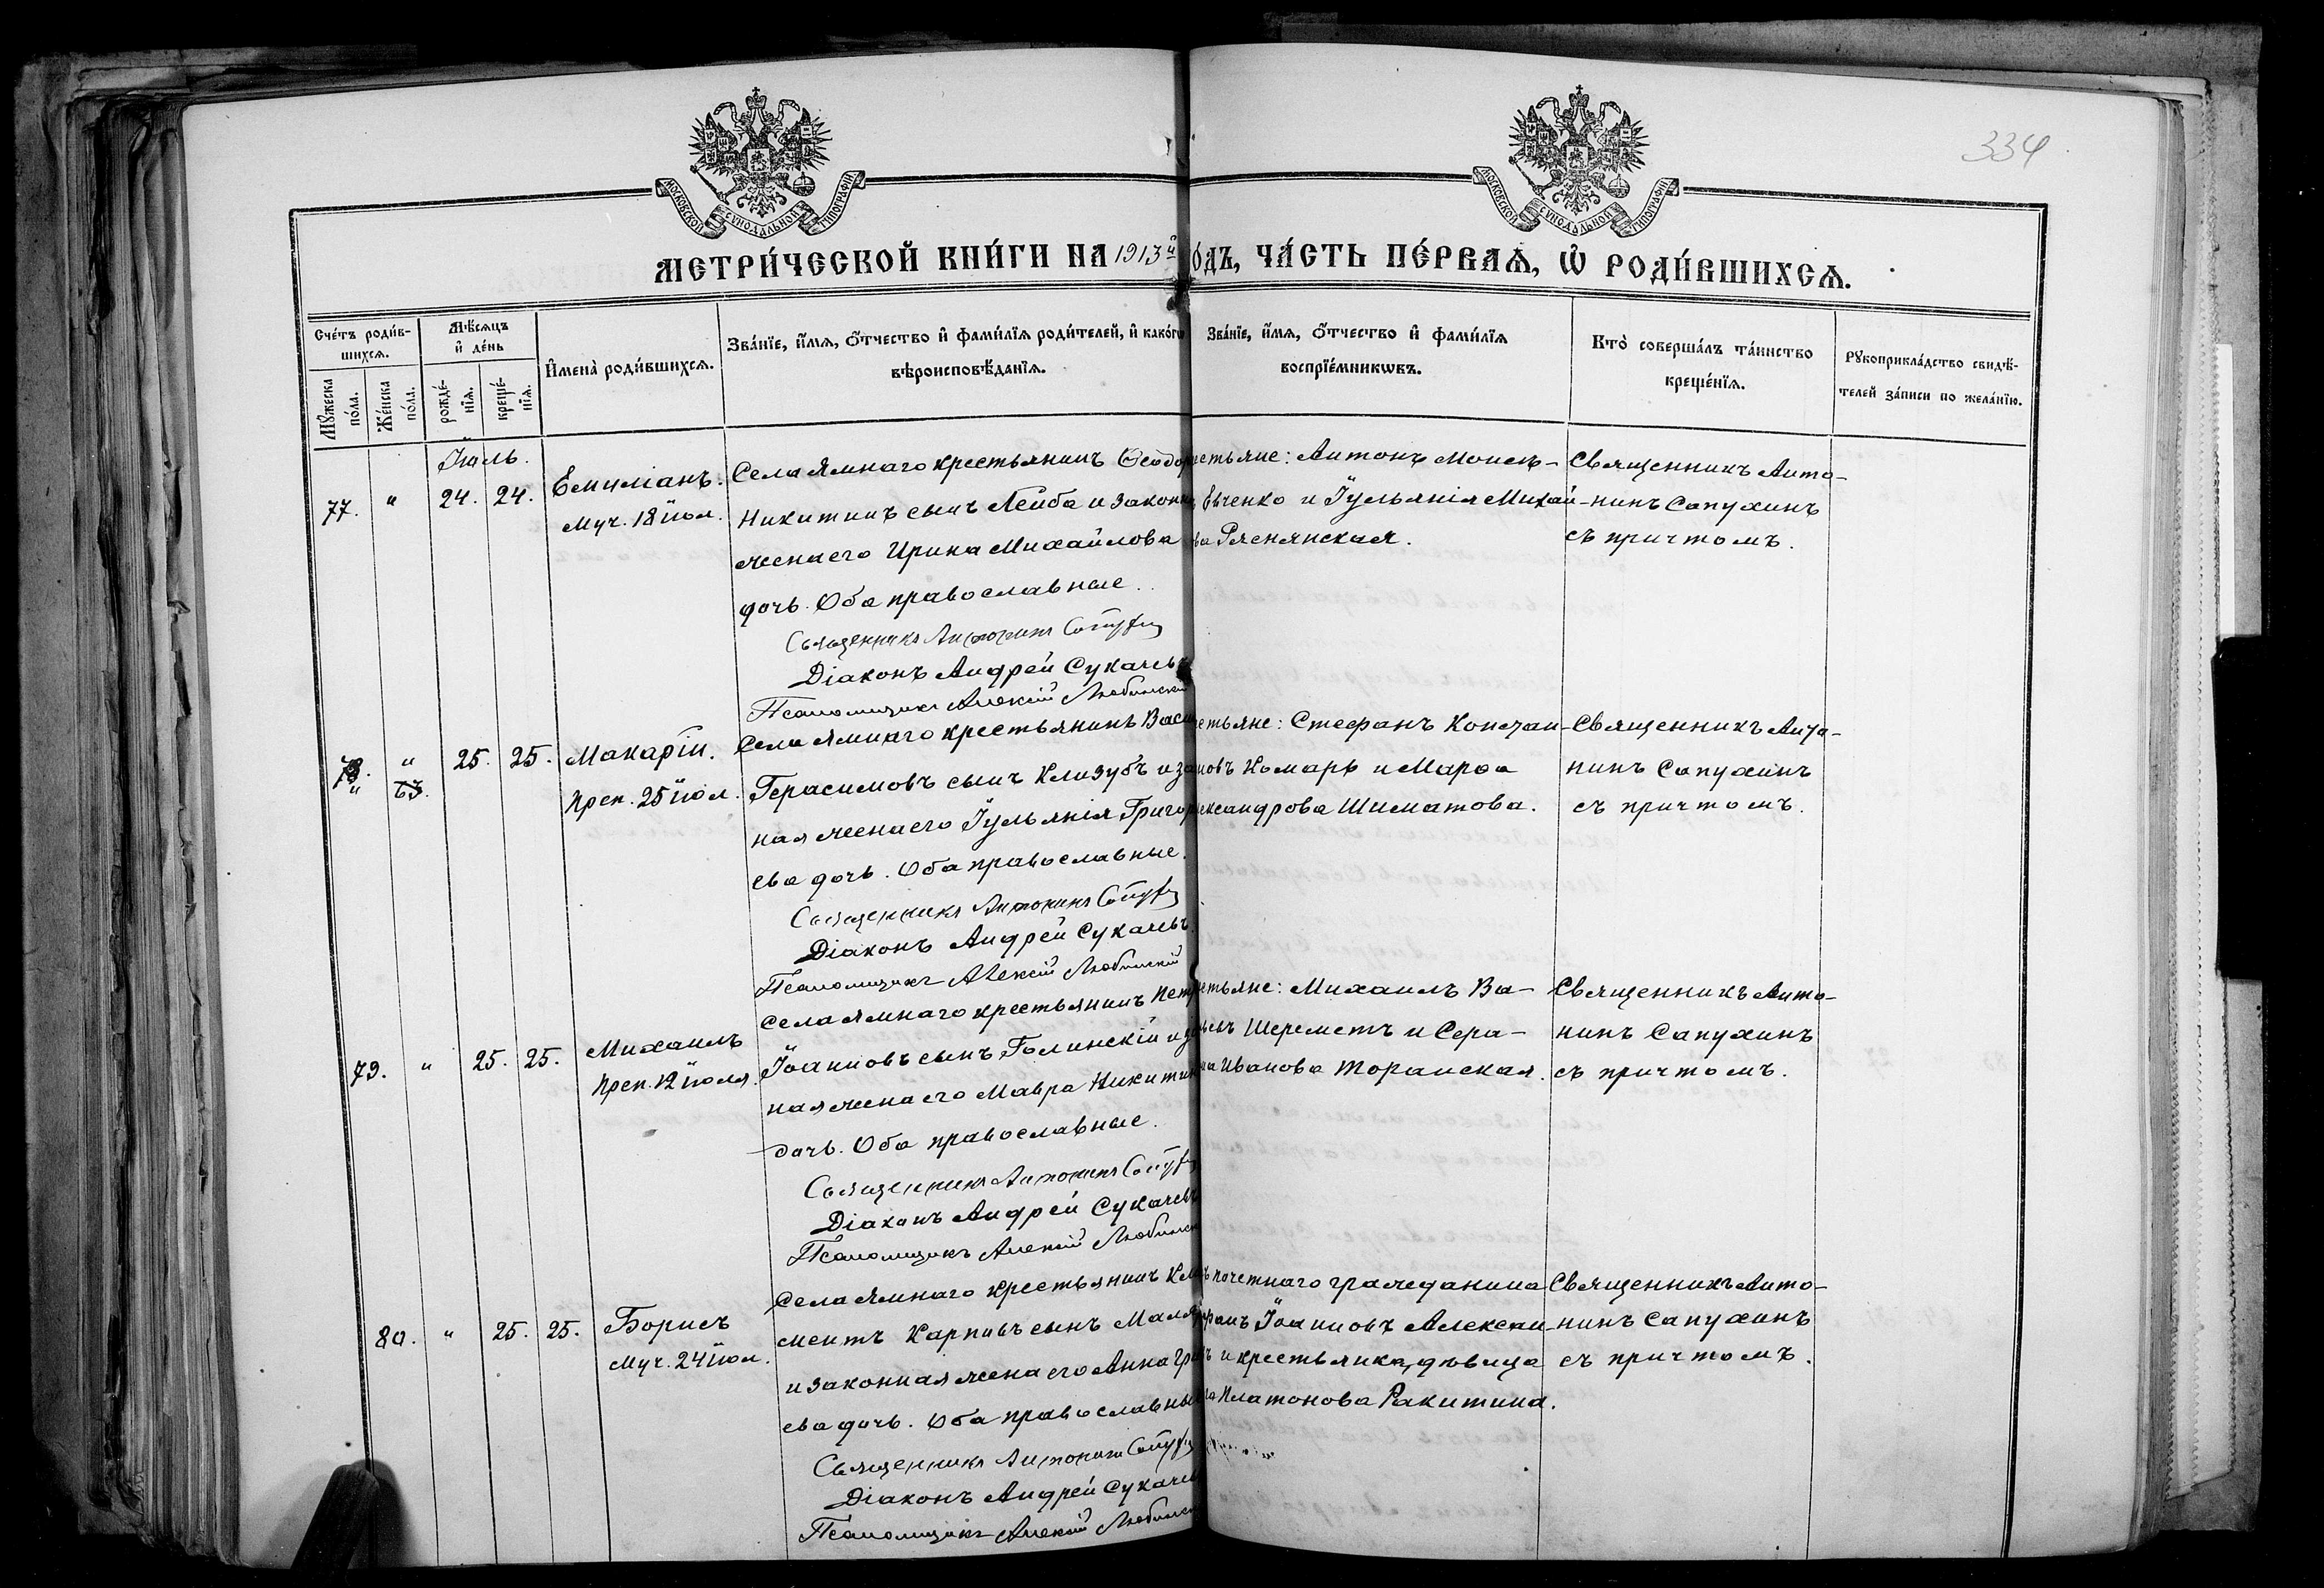 334
МОСКОВСКОЙ СУНОДАЛЬНОЙ ТИПОГРАФІИ
МОСКОВСКОЙ СУНОДАЛЬНОЙ ТИПОГРАФІИ
МЕТРИ́ЧЕСКОЙ КНИ́ГИ НА 1913й О́ДЪ, ЧА́СТЬ ПЕ́РВАѦ, Ѡ҆ РОДИ́ВШИХСѦ.
Сче́тъ роди́в-
шихсѧ.
Мꙋжеска по́ла.
Же́нска по́ла.
Мѣ́сѧцъ
и҆ де́нь
рожде́-
нїѧ.
креще́-
нїѧ.
И҆мена̀ роди́вшихсѧ.
Зва́нїе, и҆́мѧ, ѻ҆́тчество и҆ фами́лїѧ роди́телей, и҆ како́гѡ
вѣроисповѣ́данїѧ.
Зва́нїе, и҆́мѧ, ѻ҆́тчество и҆ фами́лїѧ
воспрїе́мникѡвъ.
Кто̀ соверша́лъ та́инство
креще́нїѧ.
Рꙋкоприкла́дство свидѣ́-
телей за́писи по жела́нїю.
Іюль.
77. " 24. 24.
Емиліанъ.
Муч. 18 іюл.
Села Ямнаго крестьянинъ Ѳеодор
Никитинъ сынъ Лейба и законн
жена его Ирина Михайлова
дочь. Оба православные.
Священникъ Антонинъ Сапухин
Діаконъ Андрей Сукачевъ
Псаломщикъ Алексій Любинскій
стьяне: Антонъ Моисе-
евченко и Іульянія Михай-
ва Ряснянская.
Священникъ Анто-
нинъ Сапухинъ
съ причтомъ.
78. " 25. 25.
" 63.
Макарій.
Преп. 25 іюл.
Села Ямнаго крестьянинъ Васи
Герасимовъ сынъ Клизубъ и за
ная жена его Іульянія Григор
ева дочь. Оба православные.
Священникъ Антонинъ Сапухин
Діаконъ Андрей Сукачевъ.
Псаломщикъ Алексій Любинскій
стьяне: Стефанъ Констан-
новъ Комаръ и Марѳа
ександрова Шиматова.
Священникъ Анто-
нинъ Сапухинъ
съ причтомъ.
79. " 25. 25.
Михаилъ
Преп. 12 іюля.
Села Ямнаго крестьянинъ Петр
Іоанновъ сынъ Голинскій и за
ная жена его Мавра Никитин
дочь. Оба православные.
Священникъ Антонинъ Сапухин
Діаконъ Андрей Сукачевъ
Псаломщикъ Алексій Любинск
стьяне: Михаилъ Ва-
ьевъ Шереметъ и Сера-
ма Иванова Торанская.
Священникъ Анто-
нинъ Сапухинъ
съ причтомъ.
80. " 25. 25.
Борисъ
Муч. 24 іюл.
Села Ямнаго крестьянинъ Кли
ментъ Карповъ сынъ Маляр
и законная жена его Анна Гри
ева дочь. Оба православны
Священникъ Антонинъ Сапухин
Діаконъ Андрей Сукачев
Псаломщикъ Алексій Любинск
ъ почетнаго гражданина
фанъ Іоанновъ Алексан-
ъ и крестьянка, дѣвица
Платонова Ракитина.
Священникъ Анто-
нинъ Сапухинъ
съ причтомъ.